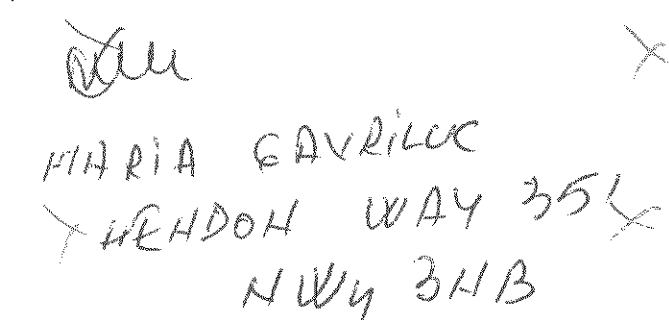 MARIA GAVRILUC
HENDON WAY 351
NW4 3NB